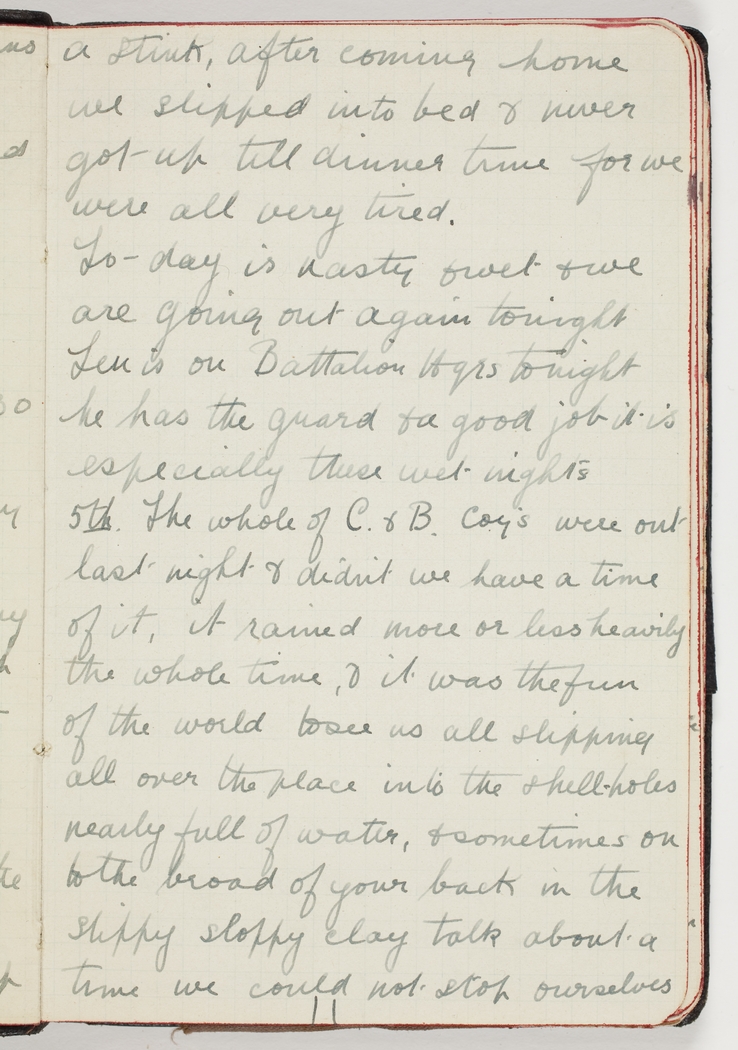 a stink, after coming home
we slipped into bed & never
got up till dinner time for we
were all very tired.
To-day is nasty & wet & we
are going out again tonight
Len is on Battalion Hqrs tonight
he has the guard & a good job it is
especially these wet nights
5th. The whole of C. & B. Coy's were out
last night & didn't we have a time
of it, it rained more or less heavily
the whole time, & it was the fun
of the world to see us all slipping
all over the place into the shell-holes
nearly full of water, & sometimes on
to the broad of your back in the
slippy sloppy clay talk about a
time we could not stop ourselves
11